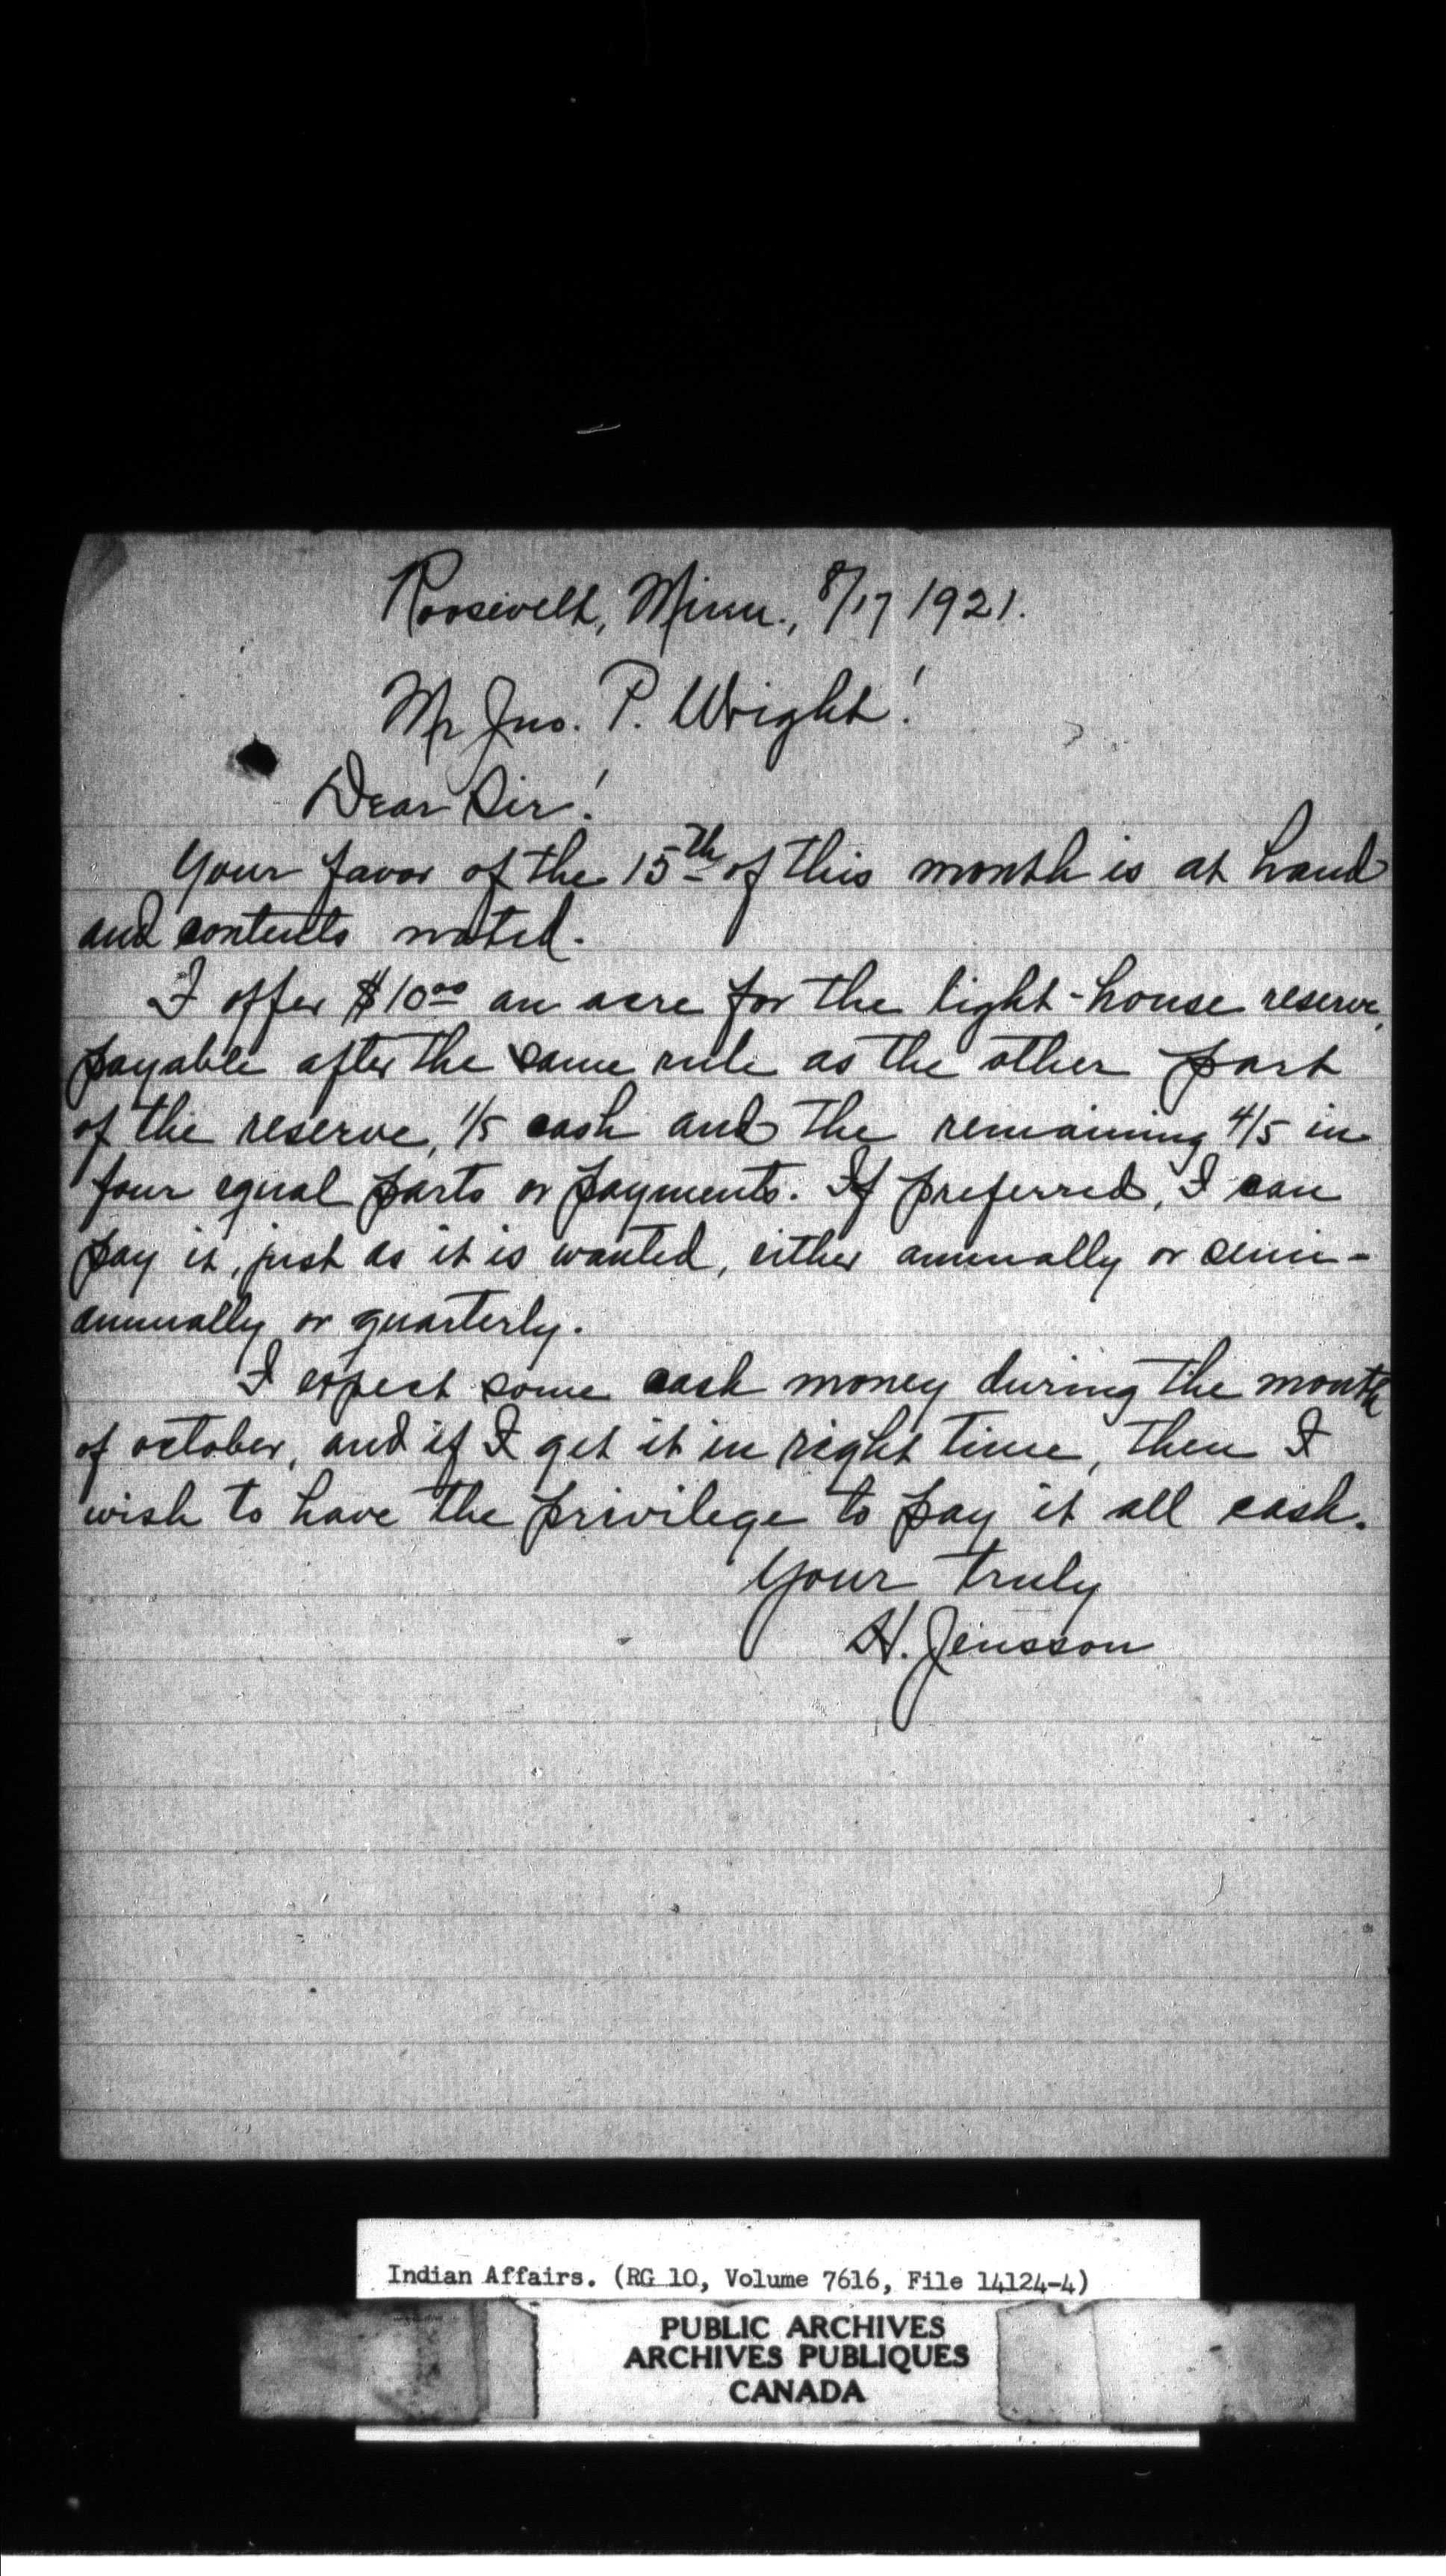 Roosevelt, Minn., 8/17 1921.
Mr Jno. P. Wright!
Dear Sir!
Your favor of the 15th of this month is at hand
and contents noted.
I offer $10 00 an acre for the light-house reserve,
payable after the same rule as the other part
of the reserve, 1/5 cash and the remaining 4/5 in
four equal parts or payments. If preferred, I can
pay it, just as it is wanted, either annually or semi-
annually or quarterly.
I expect some cash money during the month
of october, and if I get it in right time, then I
wish to have the privilege to pay it all cash.
Your truly
H. Jensson
Indian Affairs. (RG 10, Volume 7616, File 14124-4)
PUBLIC ARCHIVES
ARCHIVES PUBLIQUES
CANADA